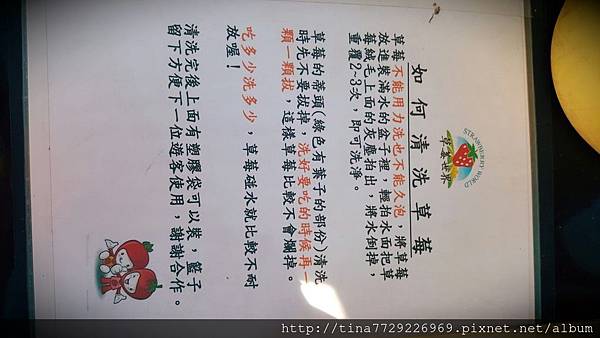 STRAWBERRY WORLD
草莓世界
如何清洗草莓
草莓不能用力洗也不能久泡，將草莓
放進裝滿水的盆子裡，輕拍水面把草
莓絨毛上面的灰塵拍出，將水倒掉，
重覆2~3次，即可洗淨。
草莓的蒂頭(綠色有葉子的部份)清洗
時先不要拔掉，洗好要吃的時候再一
顆一顆拔，這樣草莓比較不會爛掉。
吃多少洗多少，草莓碰水就比較不耐
放喔！
清洗完後上面有塑膠袋可以裝，籃子
留下方便下一位遊客使用，謝謝合作。
http://tina7729226969.pixnet.net/album